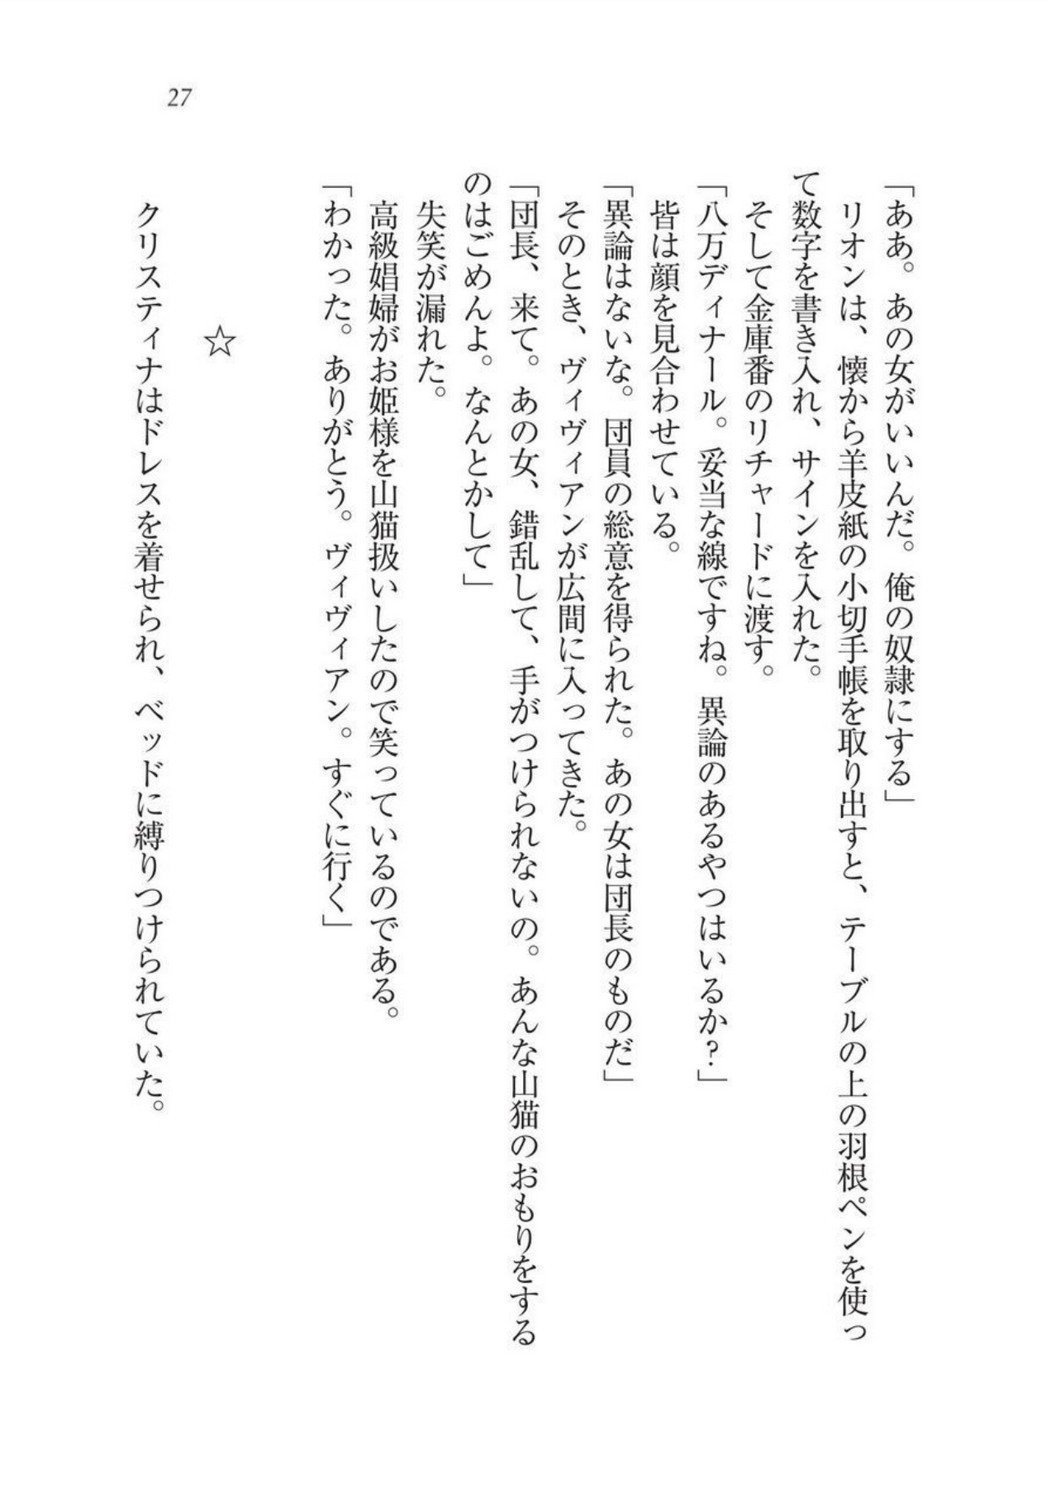 27
「ああ。あの女がいいんだ。俺の奴隷にする」
リオンは、懐から羊皮紙の小切手帳を取り出すと、テーブルの上の羽根ペンを使っ
て数字を書き入れ、サインを入れた。
そして金庫番のリチャードに渡す。
「八万ディナール。妥当な線ですね。異論のあるやつはいるか?」
皆は顔を見合わせている。
「異論はないな。団員の総意を得られた。あの女は団長のものだ」
そのとき、ヴィヴィアンが広間に入ってきた。
「団長、来て。あの女、錯乱して、手がつけられないの。あんな山猫のおもりをする
のはごめんよ。なんとかして」
失笑が漏れた。
高級娼婦がお姫様を山猫扱いしたので笑っているのである。
「わかった。ありがとう。ヴィヴィアン。すぐに行く」
☆
クリスティナはドレスを着せられ、ベッドに縛りつけられていた。